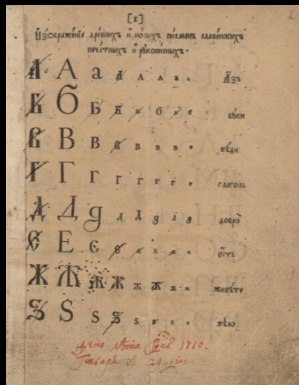 [1]
Изображенїе древнихъ и новыхъ писменъ славенскихъ
печатныхъ и рукописныхъ.
А А а а а а а азъ
Б Б Б б б б б буки
В В В в в в в вѣди
Г Г Г г г г г глаголь
Д Д д д д д д добро
Е Е е е е е е есть
Ж Ж ж ж ж ж ж живѣте
Ѕ Ѕ ѕ ѕ ѕ ѕ ѕ ѕѣло
дано лѣта 1710.
Генваря 29 дня